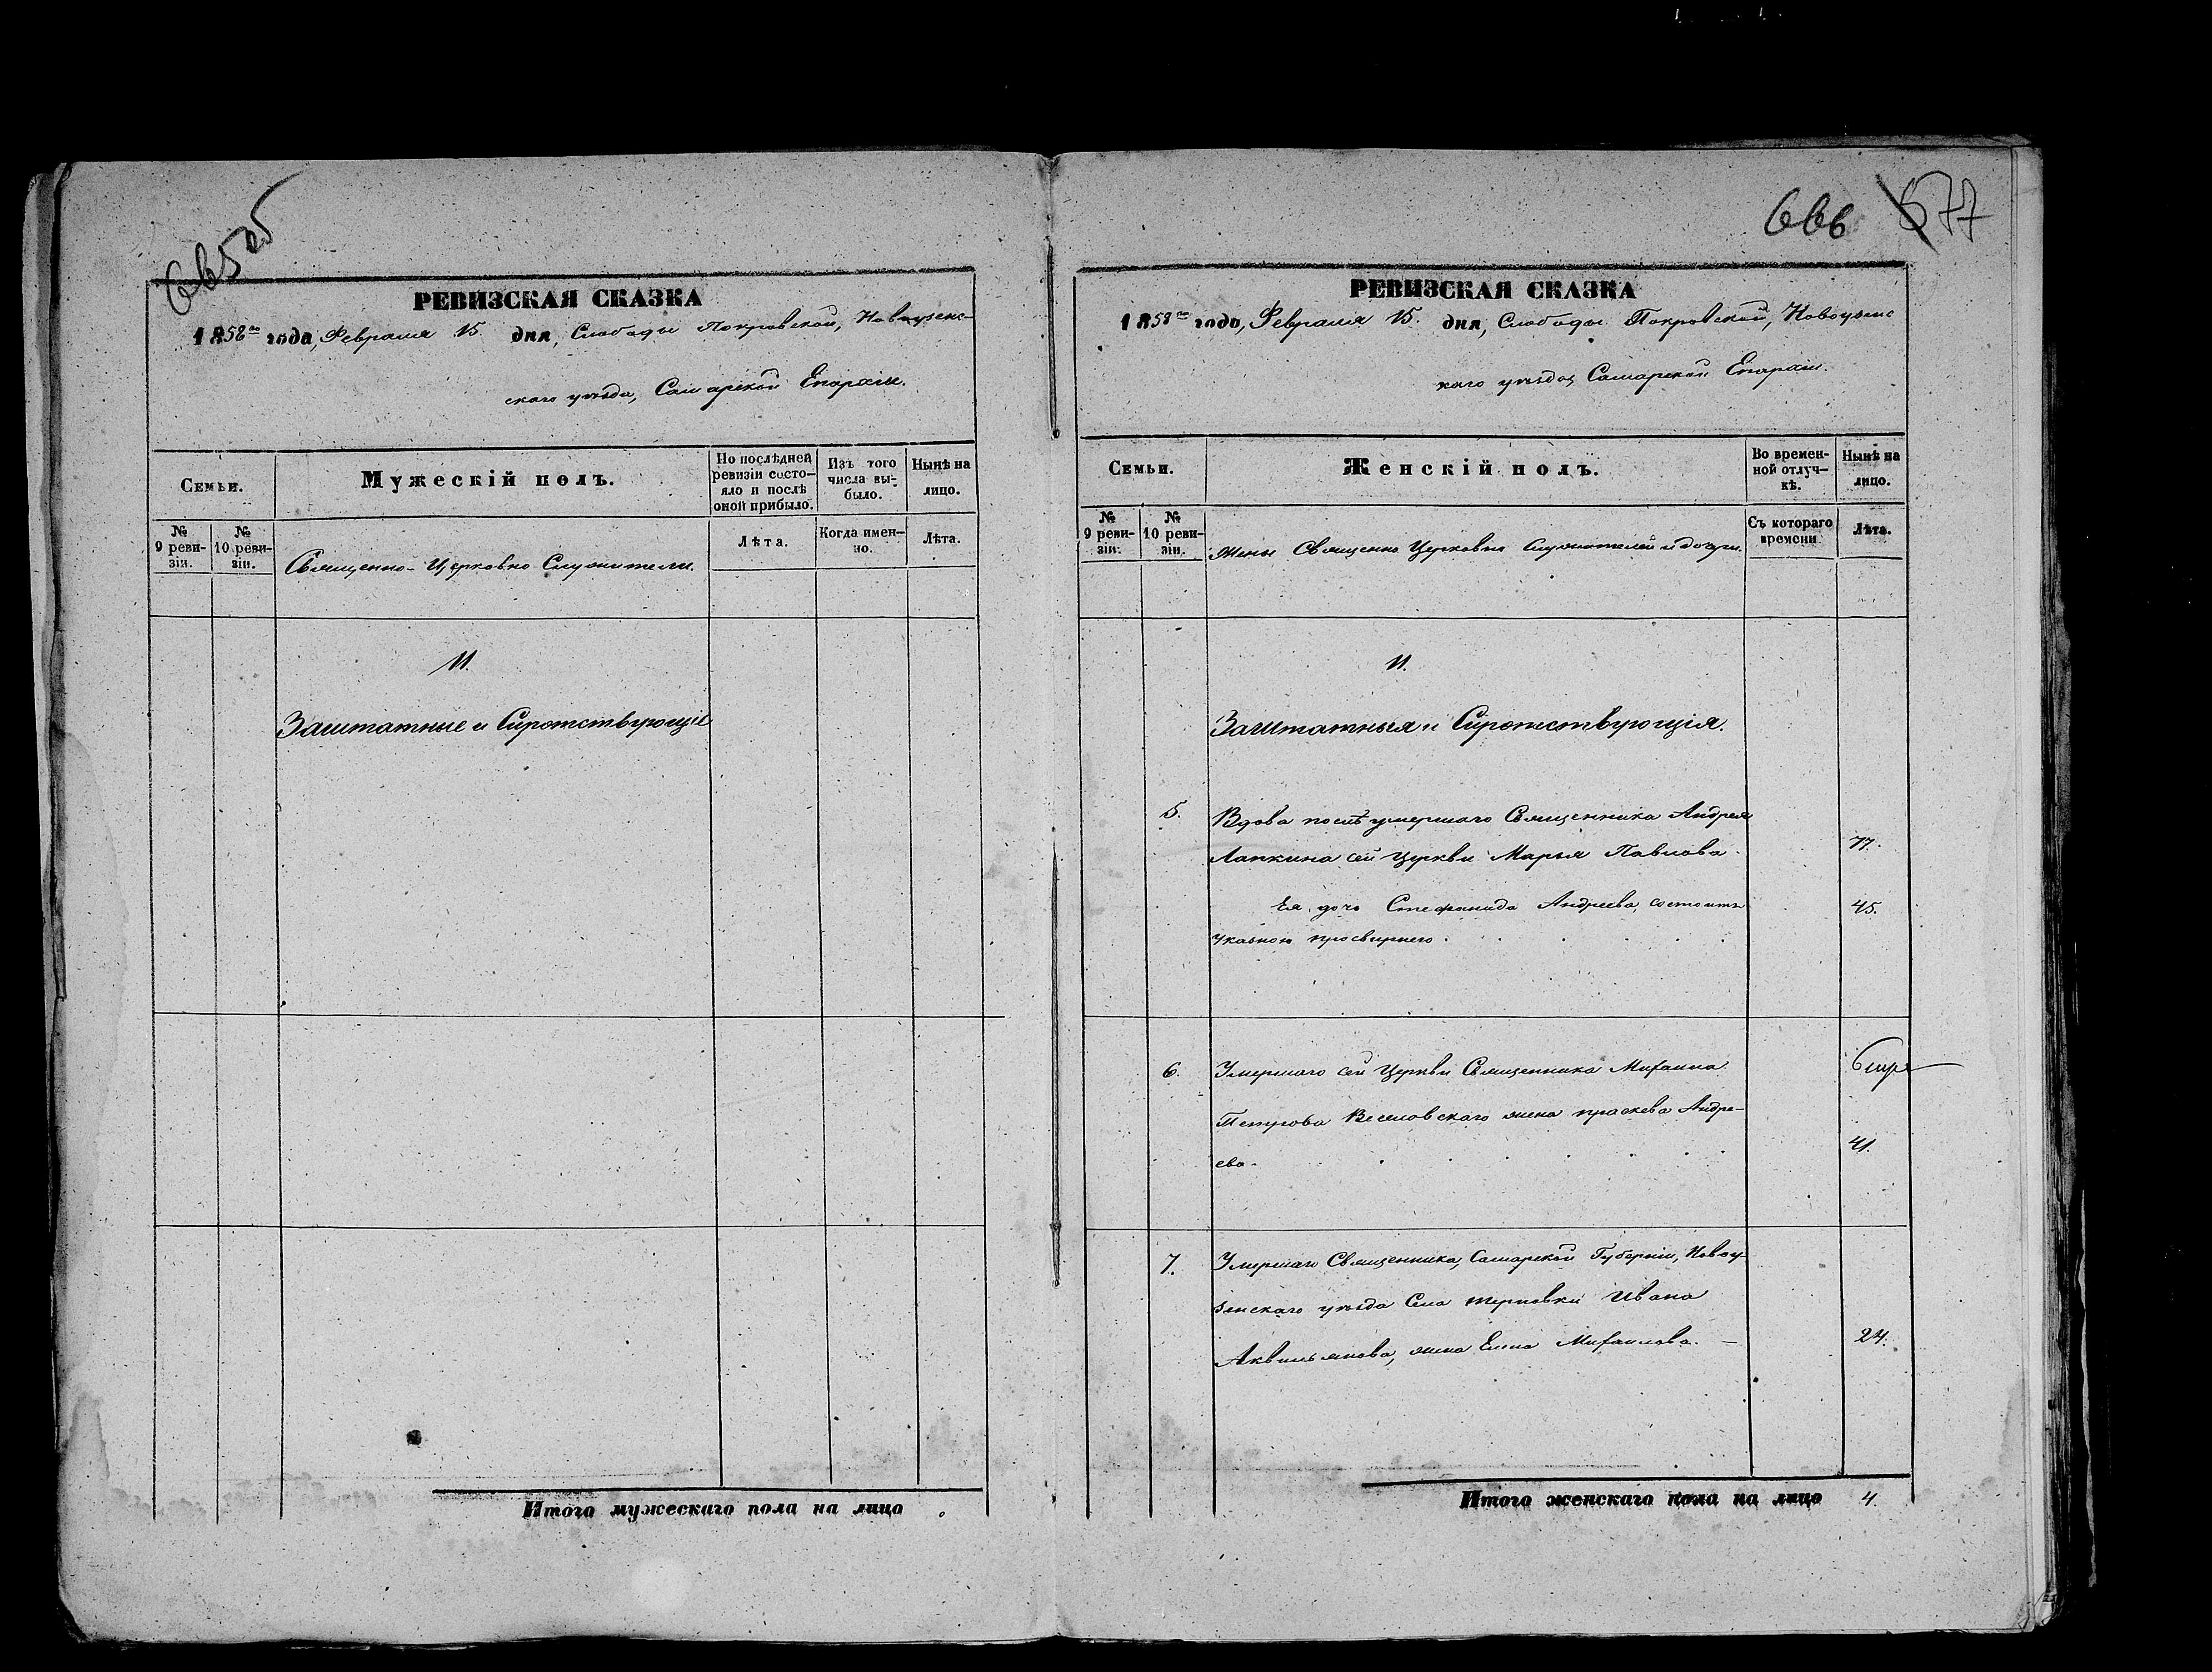 665 об
РЕВИЗСКАЯ СКАЗКА
1858го года, Февраля 15. дня, Слободы Покровской, Новоузенс-
скаго уѣзда, Самарской Епархіи.
Семьи.
Мужескій полъ.
По послѣдней ревизіи состо-
яло и послѣ оной прибыло.
Изъ того числа вы-
было.
Нынѣ на лицо.
№ 9 реви-
зіи.
№ 10 реви-
зіи.
Священно-Церковно-Служители.
Лѣта.
Когда имен-
но.
Лѣта.
II.
Заштатные и Сиротствующіе
Итого мужескаго пола на лицо
666 677
РЕВИЗСКАЯ СКАЗКА
1858го года, Февраля 15. дня, Слободы Покровской, Новоузенс
каго уѣзда, Самарской Епархіи.
Семьи.
Женскій полъ.
Во времен-
ной отлуч-
кѣ.
Нынѣ на лицо.
№ 9 реви-
зіи.
№ 10 реви-
зіи.
Жены Священно Церковно Служителей и дочери.
Съ котораго времени
Лѣта.
II.
Заштатныя и Сиротствующія.
5. Вдова послѣ умершаго Священника Андрея
Лапкина сей Церкви Марья Павлова. 77.
Ея дочь Стефанида Андреева, состоитъ 45.
указною просвирнею.
6. Умершаго сей Церкви Священника Михаила
Петрова Веселовскаго жена Праскева Андре-
ева. 41.
7. Умершаго Священника, Самарской Губерніи, Новоу-
зенскаго уѣзда Села Терновки Ивана
Аквильянова, жена Елена Михайлова. — 24.
Итого женскаго пола на лицо 4.